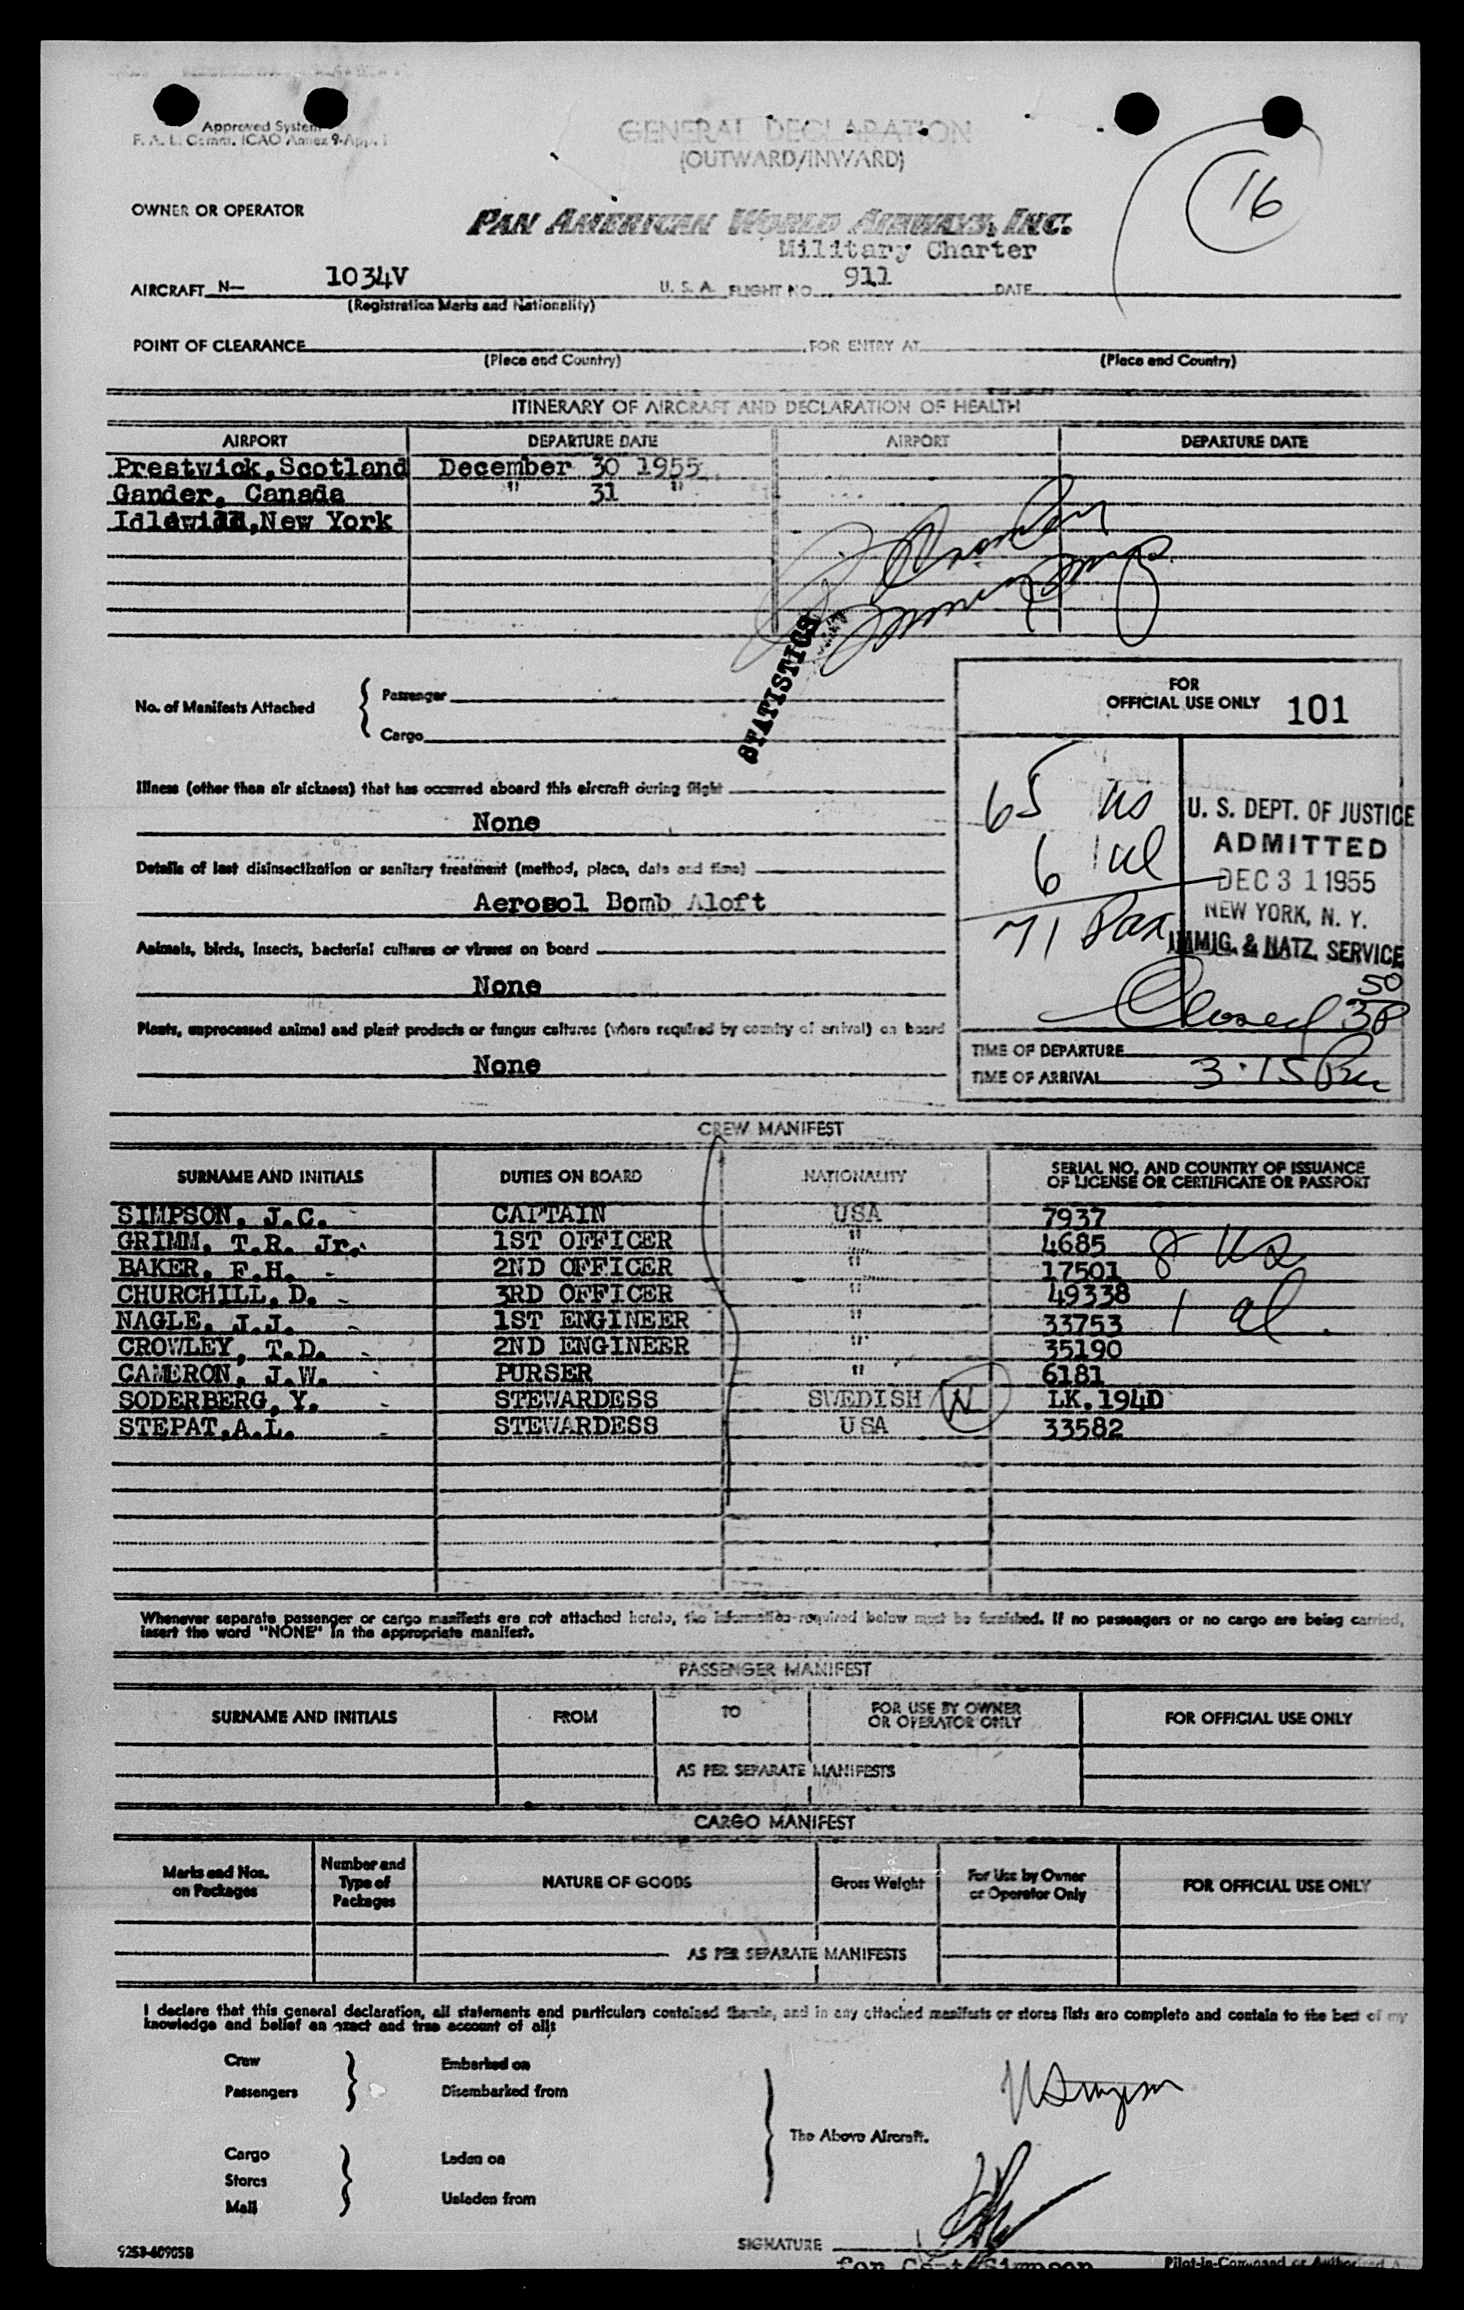 Approved System
F. A. L. Comm. ICAO Annex 9-App. 1
GENERAL DECLARATION
(OUTWARD/INWARD)
16
OWNER OR OPERATOR
PAN AMERICAN WORLD AIRWAYS, INC.
Military Charter
AIRCRAFT N— 1034V U. S. A. FLIGHT NO. 911 DATE
(Registration Marks and Nationality)
POINT OF CLEARANCE FOR ENTRY AT
(Place and Country) (Place and Country)
ITINERARY OF AIRCRAFT AND DECLARATION OF HEALTH
AIRPORT DEPARTURE DATE AIRPORT DEPARTURE DATE
Prestwick, Scotland December 30 1955
Gander, Canada " 31 "
Idlewild, New York
STATISTICS
No. of Manifests Attached { Passenger
Cargo
FOR
OFFICIAL USE ONLY 101
Illness (other than air sickness) that has occurred aboard this aircraft during flight
None
Details of last disinsectization or sanitary treatment (method, place, date and time)
Aerosol Bomb Aloft
Animals, birds, insects, bacterial cultures or viruses on board
None
Plants, unprocessed animal and plant products or fungus cultures (where required by country of arrival) on board
None
65 us
6 al
71 Pax
U. S. DEPT. OF JUSTICE
ADMITTED
DEC 31 1955
NEW YORK, N. Y.
IMMIG. & NATZ. SERVICE
Closed 3 50 P
TIME OF DEPARTURE
TIME OF ARRIVAL 3:15 Pm
CREW MANIFEST
SURNAME AND INITIALS DUTIES ON BOARD NATIONALITY SERIAL NO. AND COUNTRY OF ISSUANCE
OF LICENSE OR CERTIFICATE OR PASSPORT
SIMPSON, J.C. CAPTAIN USA 7937
GRIMM, T.R. Jr. 1ST OFFICER " 4685 8 us
BAKER, F.H. 2ND OFFICER " 17501
CHURCHILL, D. 3RD OFFICER " 49338
NAGLE, J.J. 1ST ENGINEER " 33753 1 al
CROWLEY, T.D. 2ND ENGINEER " 35190
CAMERON, J.W. PURSER " 6181
SODERBERG, Y. STEWARDESS SWEDISH N LK.194D
STEPAT, A.L. STEWARDESS USA 33582
Whenever separate passenger or cargo manifests are not attached hereto, the information required below must be furnished. If no passengers or no cargo are being carried,
insert the word "NONE" in the appropriate manifest.
PASSENGER MANIFEST
SURNAME AND INITIALS FROM TO FOR USE BY OWNER
OR OPERATOR ONLY FOR OFFICIAL USE ONLY
AS PER SEPARATE MANIFESTS
CARGO MANIFEST
Marks and Nos.
on Packages Number and
Type of
Packages NATURE OF GOODS Gross Weight For Use by Owner
or Operator Only FOR OFFICIAL USE ONLY
AS PER SEPARATE MANIFESTS
I declare that this general declaration, all statements and particulars contained therein, and in any attached manifests or stores lists are complete and contain to the best of my
knowledge and belief an exact and true account of all:
Crew Embarked on
Passengers Disembarked from
The Above Aircraft.
Cargo Laden on
Stores
Mail Unladen from
SIGNATURE
for Capt Simpson Pilot-in-Command or Authorized A
9253-60905B